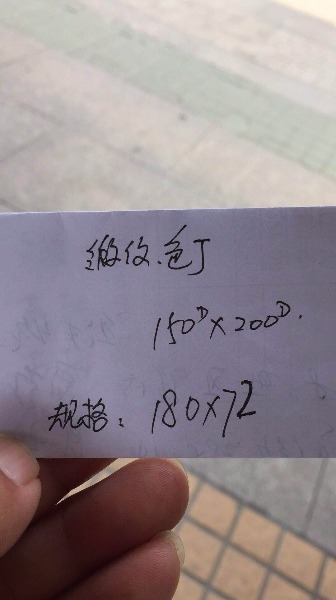 缎纹.色丁
150D×200D.
规格：180×72